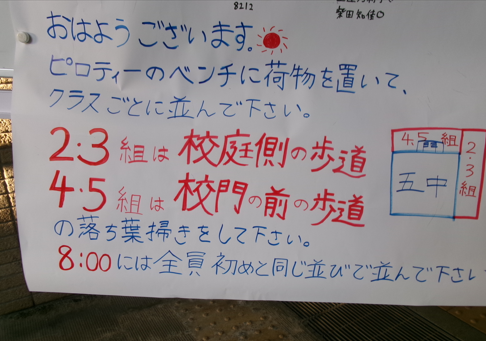 8212
おはようございます。
ピロティーのベンチに荷物を置いて、
クラスごとに並んで下さい。
2・3組は校庭側の歩道
4・5組は校門の前の歩道
の落ち葉掃きをして下さい。
8:00には全員初めと同じ並びで並んで下さい
4.5組
2・3組
五中